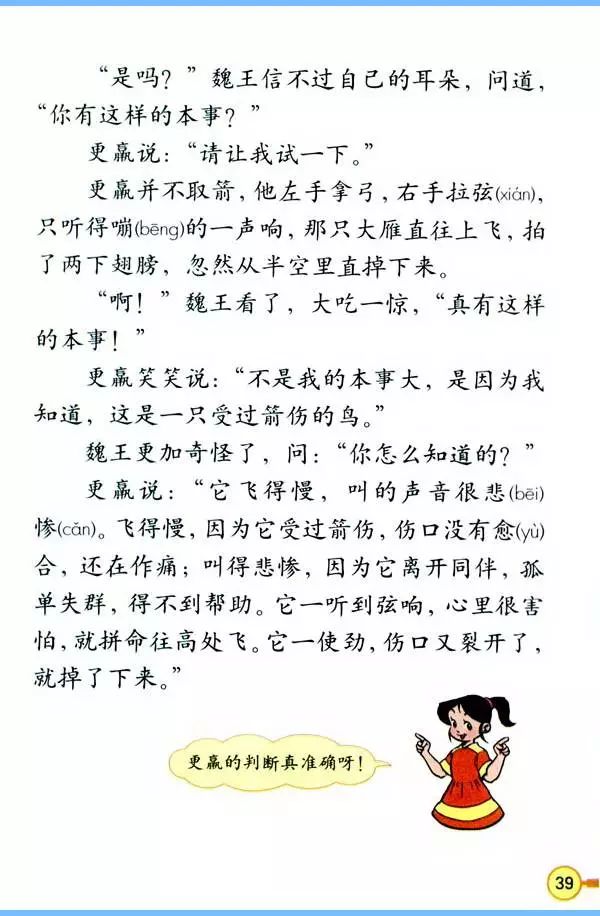 “是吗？”魏王信不过自己的耳朵，问道，
“你有这样的本事？”
更羸说：“请让我试一下。”
更羸并不取箭，他左手拿弓，右手拉弦(xián)，
只听得嘣(bēng)的一声响，那只大雁直往上飞，拍
了两下翅膀，忽然从半空里直掉下来。
“啊！”魏王看了，大吃一惊，“真有这样
的本事！”
更羸笑笑说：“不是我的本事大，是因为我
知道，这是一只受过箭伤的鸟。”
魏王更加奇怪了，问：“你怎么知道的？”
更羸说：“它飞得慢，叫的声音很悲(bēi)
惨(cǎn)。飞得慢，因为它受过箭伤，伤口没有愈(yù)
合，还在作痛；叫得悲惨，因为它离开同伴，孤
单失群，得不到帮助。它一听到弦响，心里很害
怕，就拼命往高处飞。它一使劲，伤口又裂开了，
就掉了下来。”
更羸的判断真准确呀！
39